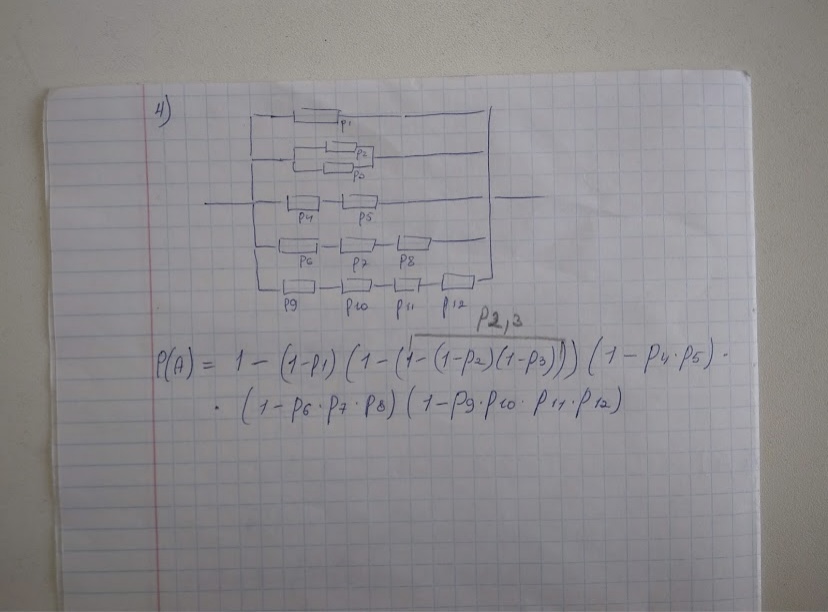 4)
p1
p2
p3
p4 p5
p6 p7 p8
p9 p10 p11 p12
p2,3
P(A) = 1 - (1-p1) (1 - (1 - (1-p2)(1-p3))) (1 - p4 · p5) ·
· (1 - p6 · p7 · p8) (1 - p9 · p10 · p11 · p12)